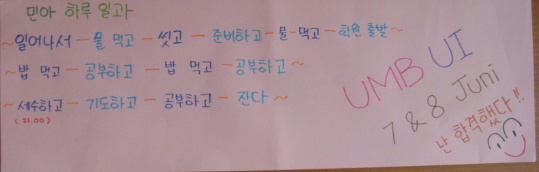 민아 하루 일과
~일어나서 - 물 먹고 - 씻고 - 준비하고 - 물 먹고 - 학원 출발~
~밥 먹고 - 공부하고 - 밥 먹고 - 공부하고~
~세수하고 - 기도하고 - 공부하고 - 잔다~
(21.00)
UMB UI
7 & 8 Juni
난 합격했다!!